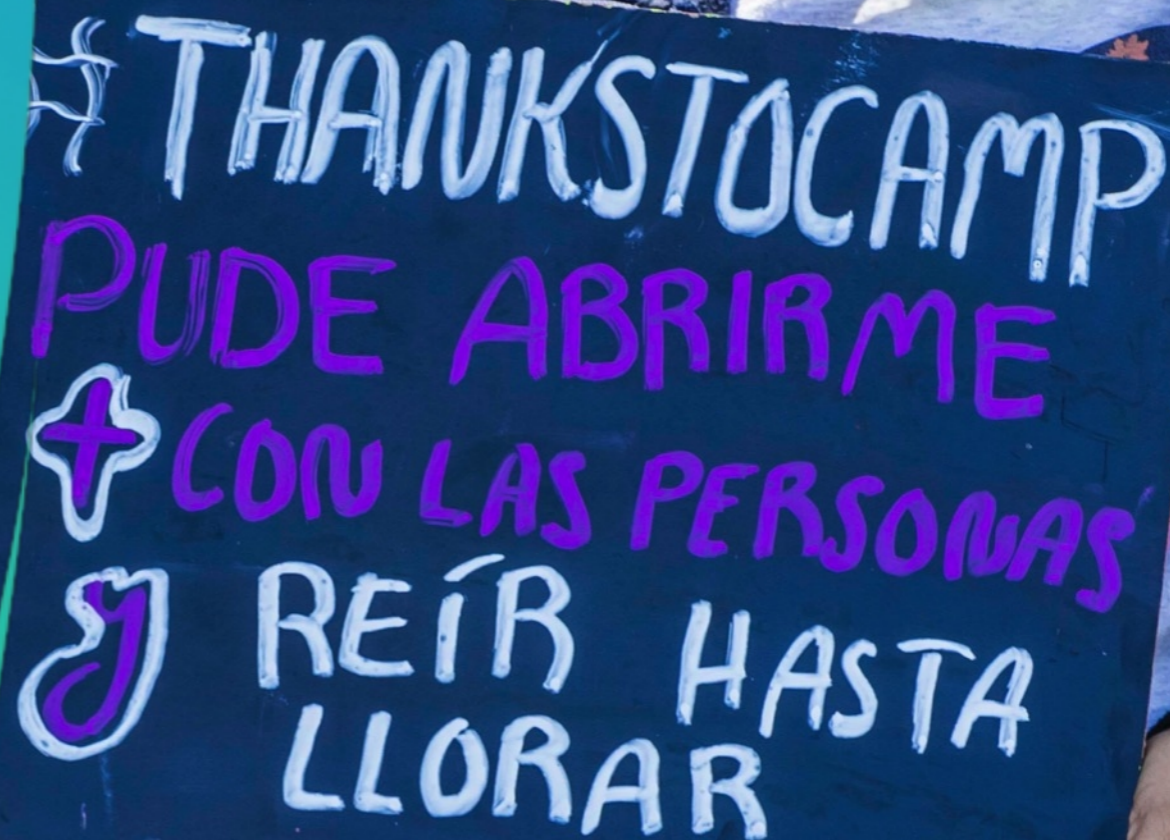 #THANKSTOCAMP
PUDE ABRIRME
+ CON LAS PERSONAS
y REÍR HASTA
LLORAR